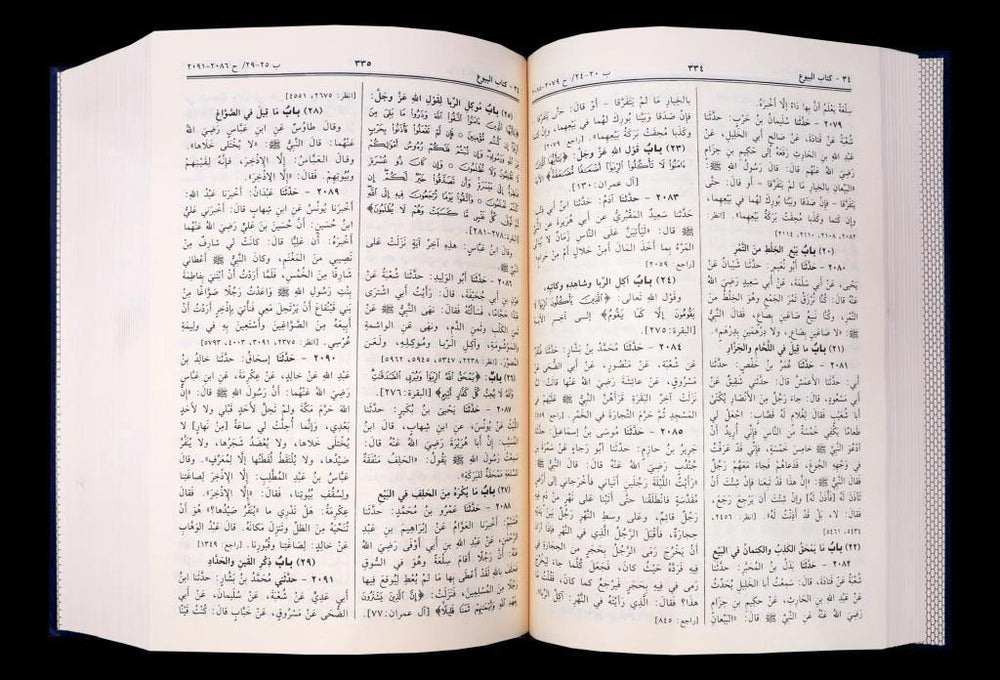 ٣٤ - كتاب البيوع
٣٣٤
ب ٢٠-٢٤/ ح ٢٠٧٩-٢٠٨٥
سِلْعَةً يَعْلَمُ أَنَّ بِها دَاءً إِلَّا أَخْبَرَهُ.
٢٠٧٩ - حَدَّثَنا سُلَيْمانُ بْنُ حَرْبٍ: حَدَّثَنا
شُعْبَةُ عَنْ قَتادَةَ، عَنْ صَالِحٍ أَبي الخَلِيلِ، عَنْ
عَبْدِ اللهِ بنِ الحَارِثِ رَفَعَهُ إِلى حَكِيمِ بنِ حِزَامٍ
رَضِيَ اللهُ عَنْهُ قالَ: قالَ رَسُولُ اللهِ ﷺ:
«البَيِّعانِ بِالخِيارِ ما لَمْ يَتَفَرَّقا - أَوْ قالَ: حَتَّى
يَتَفَرَّقا - فَإِنْ صَدَقا وَبَيَّنا بُورِكَ لَهُما في بَيْعِهِما،
وَإِنْ كَتَما وَكَذَبا مُحِقَتْ بَرَكَةُ بَيْعِهِما». [انظر:
٢٠٨٢، ٢١٠٨، ٢١١٠، ٢١١٤]
(٢٠) بابُ بَيْعِ الخِلْطِ مِنَ التَّمْرِ
٢٠٨٠ - حَدَّثَنا أَبُو نُعَيْمٍ: حَدَّثَنا شَيْبانُ عَنْ
يَحْيى، عَنْ أَبي سَلَمَةَ، عَنْ أَبي سَعِيدٍ رَضِيَ اللهُ
عَنْهُ قالَ: كُنَّا نُرْزَقُ تَمْرَ الجَمْعِ وَهُوَ الخِلْطُ مِنَ
التَّمْرِ، وَكُنَّا نَبِيعُ صَاعَيْنِ بِصَاعٍ، فَقالَ النَّبِيُّ
ﷺ: «لا صَاعَيْنِ بِصَاعٍ، وَلا دِرْهَمَيْنِ بِدِرْهَمٍ».
(٢١) بابُ ما قِيلَ في اللَّحَّامِ وَالجَزَّارِ
٢٠٨١ - حَدَّثَنا عُمَرُ بْنُ حَفْصٍ: حَدَّثَنا
أَبي: حَدَّثَنا الأَعْمَشُ قالَ: حَدَّثَني شَقِيقٌ عَنْ
أَبي مَسْعُودٍ، قالَ: جاءَ رَجُلٌ مِنَ الأَنْصارِ يُكْنَى
أَبا شُعَيْبٍ فَقالَ لِغُلامٍ لَهُ قَصَّابٍ: اجْعَلْ لي
طَعامًا يَكْفي خَمْسَةً مِنَ النَّاسِ فَإِنِّي أُرِيدُ أَنْ
أَدْعُوَ النَّبِيَّ ﷺ خامِسَ خَمْسَةٍ، فَإِنِّي قَدْ عَرَفْتُ
في وَجْهِهِ الجُوعَ، فَدَعاهُمْ فَجاءَ مَعَهُمْ رَجُلٌ
فَقالَ النَّبِيُّ ﷺ: «إِنَّ هذَا قَدْ تَبِعَنا فَإِنْ شِئْتَ أَنْ
تَأْذَنَ لَهُ [فَأْذَنْ لَهُ] وَإِنْ شِئْتَ أَنْ يَرْجِعَ رَجَعَ»،
فَقالَ: لا، بَلْ قَدْ أَذِنْتُ لَهُ. [انظر: ٢٤٥٦،
٥٤٣٤، ٥٤٦١]
(٢٢) بابُ ما يَمْحَقُ الكَذِبُ وَالكِتْمانُ في البَيْعِ
٢٠٨٢ - حَدَّثَنا بَدَلُ بْنُ المُحَبَّرِ: حَدَّثَنا
شُعْبَةُ عَنْ قَتادَةَ، قالَ: سَمِعْتُ أَبا الخَلِيلِ يُحَدِّثُ
عَنْ عَبْدِ اللهِ بنِ الحَارِثِ، عَنْ حَكِيمِ بنِ حِزَامٍ
رَضِيَ اللهُ عَنْهُ عَنِ النَّبِيِّ ﷺ قالَ: «البَيِّعانِ
بِالخِيارِ ما لَمْ يَتَفَرَّقا - أَوْ قالَ: حَتَّى
فَإِنْ صَدَقا وَبَيَّنا بُورِكَ لَهُما في بَيْعِهِما، وَإِنْ
وَكَذَبا مُحِقَتْ بَرَكَةُ بَيْعِهِما». [راجع: ٢٠٧٩]
(٢٣) بابُ قَوْلِ اللهِ عَزَّ وَجَلَّ: ﴿يَٰأَيُّهَا الَّذِينَ
ءَامَنُوا لَا تَأْكُلُوا الرِّبَوٰا أَضْعَٰفًا مُّضَٰعَفَةً﴾ الآيَةَ
[آل عمران: ١٣٠]
٢٠٨٣ - حَدَّثَنا آدَمُ: حَدَّثَنا ابْنُ أَبي ذِئْبٍ:
حَدَّثَنا سَعِيدٌ المَقْبُرِيُّ عَنْ أَبي هُرَيْرَةَ عَنِ النَّبِيِّ
ﷺ قالَ: «لَيَأْتِيَنَّ عَلى النَّاسِ زَمانٌ لا يُبالي
المَرْءُ بِما أَخَذَ المَالَ أَمِنْ حَلالٍ أَمْ مِنْ حَرَامٍ».
[راجع: ٢٠٥٩]
(٢٤) بابُ آكِلِ الرِّبا وَشاهِدِهِ وَكاتِبِهِ،
وَقَوْلِ اللهِ تَعالى: ﴿الَّذِينَ يَأْكُلُونَ الرِّبَوٰا لَا
يَقُومُونَ إِلَّا كَمَا يَقُومُ﴾ إِلى آخِرِ الآيَةِ
[البقرة: ٢٧٥].
٢٠٨٤ - حَدَّثَنا مُحَمَّدُ بْنُ بَشَّارٍ: حَدَّثَنا غُنْدَرٌ
عَنْ شُعْبَةَ، عَنْ مَنْصُورٍ، عَنْ أَبي الضُّحى عَنْ
مَسْرُوقٍ، عَنْ عائِشَةَ رَضِيَ اللهُ عَنْها قالَتْ: لَمَّا
نَزَلَتْ آخِرُ البَقَرَةِ قَرَأَهُنَّ النَّبِيُّ ﷺ عَلَيْهِمْ في
المَسْجِدِ ثُمَّ حَرَّمَ التِّجارَةَ في الخَمْرِ. [راجع: ٤٥٩]
٢٠٨٥ - حَدَّثَنا مُوسَى بْنُ إِسْماعِيلَ: حَدَّثَنا
جَرِيرُ بنُ حازِمٍ: حَدَّثَنا أَبُو رَجاءٍ عَنْ سَمُرَةَ بنِ
جُنْدُبٍ رَضِيَ اللهُ عَنْهُ قالَ: قالَ النَّبِيُّ ﷺ:
«رَأَيْتُ اللَّيْلَةَ رَجُلَيْنِ أَتَياني فَأَخْرَجاني إِلى أَرْضٍ
مُقَدَّسَةٍ فَانْطَلَقْنا حَتَّى أَتَيْنا عَلى نَهَرٍ مِنْ دَمٍ فِيهِ
رَجُلٌ قائِمٌ، وَعَلى وَسَطِ النَّهَرِ رَجُلٌ بَيْنَ يَدَيْهِ
حِجارَةٌ، فَأَقْبَلَ الرَّجُلُ الَّذِي في النَّهَرِ فَإِذَا أَرَادَ
أَنْ يَخْرُجَ رَمَى الرَّجُلُ بِحَجَرٍ مِنَ الحِجارَةِ في
فِيهِ فَرَدَّهُ حَيْثُ كانَ، فَجَعَلَ كُلَّما جاءَ لِيَخْرُجَ
رَمَى في فِيهِ بِحَجَرٍ فَيَرْجِعُ كَما كانَ، فَقُلْتُ: ما
هذَا؟ فَقالَ: الَّذِي رَأَيْتَهُ في النَّهَرِ: آكِلُ الرِّبا».
[راجع: ٨٤٥]
٣٤ - كتاب البيوع
٣٣٥
ب ٢٥-٢٩/ ح ٢٠٨٦-٢٠٩١
(٢٥) بابُ مُوكِلِ الرِّبا لِقَوْلِ اللهِ عَزَّ وَجَلَّ:
﴿يَٰأَيُّهَا الَّذِينَ ءَامَنُوا اتَّقُوا اللَّهَ وَذَرُوا مَا بَقِيَ مِنَ
الرِّبَوٰا إِن كُنتُم مُّؤْمِنِينَ ○ فَإِن لَّمْ تَفْعَلُوا فَأْذَنُوا بِحَرْبٍ
مِّنَ اللَّهِ وَرَسُولِهِ وَإِن تُبْتُمْ فَلَكُمْ رُءُوسُ أَمْوَٰلِكُمْ
لَا تَظْلِمُونَ وَلَا تُظْلَمُونَ ○ وَإِن كَانَ ذُو عُسْرَةٍ
فَنَظِرَةٌ إِلَىٰ مَيْسَرَةٍ وَأَن تَصَدَّقُوا خَيْرٌ لَّكُمْ إِن
كُنتُمْ تَعْلَمُونَ ○ وَاتَّقُوا يَوْمًا تُرْجَعُونَ فِيهِ إِلَى اللَّهِ
ثُمَّ تُوَفَّىٰ كُلُّ نَفْسٍ مَّا كَسَبَتْ وَهُمْ لَا يُظْلَمُونَ﴾
[البقرة: ٢٧٨-٢٨١].
وَقالَ ابنُ عَبَّاسٍ: هذِهِ آخِرُ آيَةٍ نَزَلَتْ عَلى
النَّبِيِّ ﷺ.
٢٠٨٦ - حَدَّثَنا أَبُو الوَلِيدِ: حَدَّثَنا شُعْبَةُ عَنْ
عَوْنِ بنِ أَبي جُحَيْفَةَ، قالَ: رَأَيْتُ أَبي اشْتَرَى
عَبْدًا حَجَّامًا، فَسَأَلْتُهُ فَقالَ: نَهَى النَّبِيُّ ﷺ عَنْ
ثَمَنِ الكَلْبِ وَثَمَنِ الدَّمِ، وَنَهَى عَنِ الواشِمَةِ
وَالمَوْشُومَةِ، وَآكِلِ الرِّبا وَمُوكِلِهِ، وَلَعَنَ
المُصَوِّرَ. [انظر: ٢٢٣٨، ٥٣٤٧، ٥٩٤٥، ٥٩٦٢]
(٢٦) بابٌ: ﴿يَمْحَقُ اللَّهُ الرِّبَوٰا وَيُرْبِي الصَّدَقَٰتِ
وَاللَّهُ لَا يُحِبُّ كُلَّ كَفَّارٍ أَثِيمٍ﴾ [البقرة: ٢٧٦].
٢٠٨٧ - حَدَّثَنا يَحْيَىٰ بْنُ بُكَيْرٍ: حَدَّثَنا
اللَّيْثُ عَنْ يُونُسَ، عَنِ ابنِ شِهابٍ، قالَ ابْنُ
المُسَيَّبِ: إِنَّ أَبا هُرَيْرَةَ رَضِيَ اللهُ عَنْهُ قالَ:
سَمِعْتُ رَسُولَ اللهِ ﷺ يَقُولُ: «الحَلِفُ مَنْفَقَةٌ
لِلسِّلْعَةِ مَمْحَقَةٌ لِلْبَرَكَةِ».
(٢٧) بابُ ما يُكْرَهُ مِنَ الحَلِفِ في البَيْعِ
٢٠٨٨ - حَدَّثَنا عَمْرُو بْنُ مُحَمَّدٍ: حَدَّثَنا
هُشَيْمٌ: أَخْبَرَنا العَوَّامُ عَنْ إِبْرَاهِيمَ بنِ عَبْدِ
الرَّحْمٰنِ، عَنْ عَبْدِ اللهِ بنِ أَبي أَوْفَى رَضِيَ اللهُ
عَنْهُ: أَنَّ رَجُلًا أَقامَ سِلْعَةً وَهُوَ في السُّوقِ
فَحَلَفَ بِاللهِ لَقَدْ أُعْطِيَ بِها ما لَمْ يُعْطَ لِيُوقِعَ فِيها
رَجُلًا مِنَ المُسْلِمِينَ، فَنَزَلَتْ: ﴿إِنَّ الَّذِينَ يَشْتَرُونَ
بِعَهْدِ اللَّهِ وَأَيْمَٰنِهِمْ ثَمَنًا قَلِيلًا﴾ [آل عمران: ٧٧].
[انظر: ٢٦٧٥، ٤٥٥١]
(٢٨) بابُ ما قِيلَ في الصَّوَّاغِ
وَقالَ طاوُسٌ عَنِ ابنِ عَبَّاسٍ رَضِيَ اللهُ
عَنْهُما: قالَ النَّبِيُّ ﷺ: «لا يُخْتَلَى خَلاها».
وَقالَ العَبَّاسُ: إِلَّا الإِذْخِرَ، فَإِنَّهُ لِقَيْنِهِمْ
وَبُيُوتِهِمْ، فَقالَ: «إِلَّا الإِذْخِرَ».
٢٠٨٩ - حَدَّثَنا عَبْدَانُ: أَخْبَرَنا عَبْدُ اللهِ:
أَخْبَرَنا يُونُسُ عَنِ ابنِ شِهابٍ قالَ: أَخْبَرَني عَلِيُّ
ابنُ حُسَيْنٍ: أَنَّ حُسَيْنَ بنَ عَلِيٍّ رَضِيَ اللهُ عَنْهُما
أَخْبَرَهُ: أَنَّ عَلِيًّا قالَ: كانَتْ لي شارِفٌ مِنْ
نَصِيبي مِنَ المَغْنَمِ، وَكانَ النَّبِيُّ ﷺ أَعْطاني
شارِفًا مِنَ الخُمُسِ، فَلَمَّا أَرَدْتُ أَنْ أَبْتَنِيَ بِفاطِمَةَ
بِنْتِ رَسُولِ اللهِ ﷺ وَاعَدْتُ رَجُلًا صَوَّاغًا مِنْ
بَني قَيْنُقاعَ أَنْ يَرْتَحِلَ مَعِي فَنَأْتِيَ بِإِذْخِرٍ أَرَدْتُ أَنْ
أَبِيعَهُ مِنَ الصَّوَّاغِينَ وَأَسْتَعِينَ بِهِ في وَلِيمَةِ
عُرْسِي. [انظر: ٢٣٧٥، ٣٠٩١، ٤٠٠٣، ٥٧٩٣]
٢٠٩٠ - حَدَّثَنا إِسْحاقُ: حَدَّثَنا خالِدُ بنُ
عَبْدِ اللهِ عَنْ خالِدٍ، عَنْ عِكْرِمَةَ، عَنِ ابنِ عَبَّاسٍ
رَضِيَ اللهُ عَنْهُما: أَنَّ رَسُولَ اللهِ ﷺ قالَ: «إِنَّ
اللهَ حَرَّمَ مَكَّةَ وَلَمْ تَحِلَّ لِأَحَدٍ قَبْلي وَلا لِأَحَدٍ
بَعْدِي، وَإِنَّما أُحِلَّتْ لي ساعَةً [مِنْ نَهارٍ] لا
يُخْتَلَى خَلاها، وَلا يُعْضَدُ شَجَرُها، وَلا يُنَفَّرُ
صَيْدُها، وَلا يُلْتَقَطُ لُقَطَتُها إِلَّا لِمُعَرِّفٍ». وَقالَ
عَبَّاسُ بنُ عَبْدِ المُطَّلِبِ: إِلَّا الإِذْخِرَ لِصاغَتِنا
وَلِسُقُفِ بُيُوتِنا، فَقالَ: «إِلَّا الإِذْخِرَ». فَقالَ
عِكْرِمَةُ: هَلْ تَدْرِي ما «يُنَفَّرُ صَيْدُها»؟ هُوَ أَنْ
تُنَحِّيَهُ مِنَ الظِّلِّ وَتَنْزِلَ مَكانَهُ. قالَ عَبْدُ الوَهَّابِ
عَنْ خالِدٍ: لِصاغَتِنا وَقُبُورِنا. [راجع: ١٣٤٩]
(٢٩) بابُ ذِكْرِ القَيْنِ وَالحَدَّادِ
٢٠٩١ - حَدَّثَني مُحَمَّدُ بْنُ بَشَّارٍ: حَدَّثَنا ابْنُ
أَبي عَدِيٍّ عَنْ شُعْبَةَ، عَنْ سُلَيْمانَ، عَنْ أَبي
الضُّحَى عَنْ مَسْرُوقٍ، عَنْ خَبَّابٍ قالَ: كُنْتُ قَيْنًا